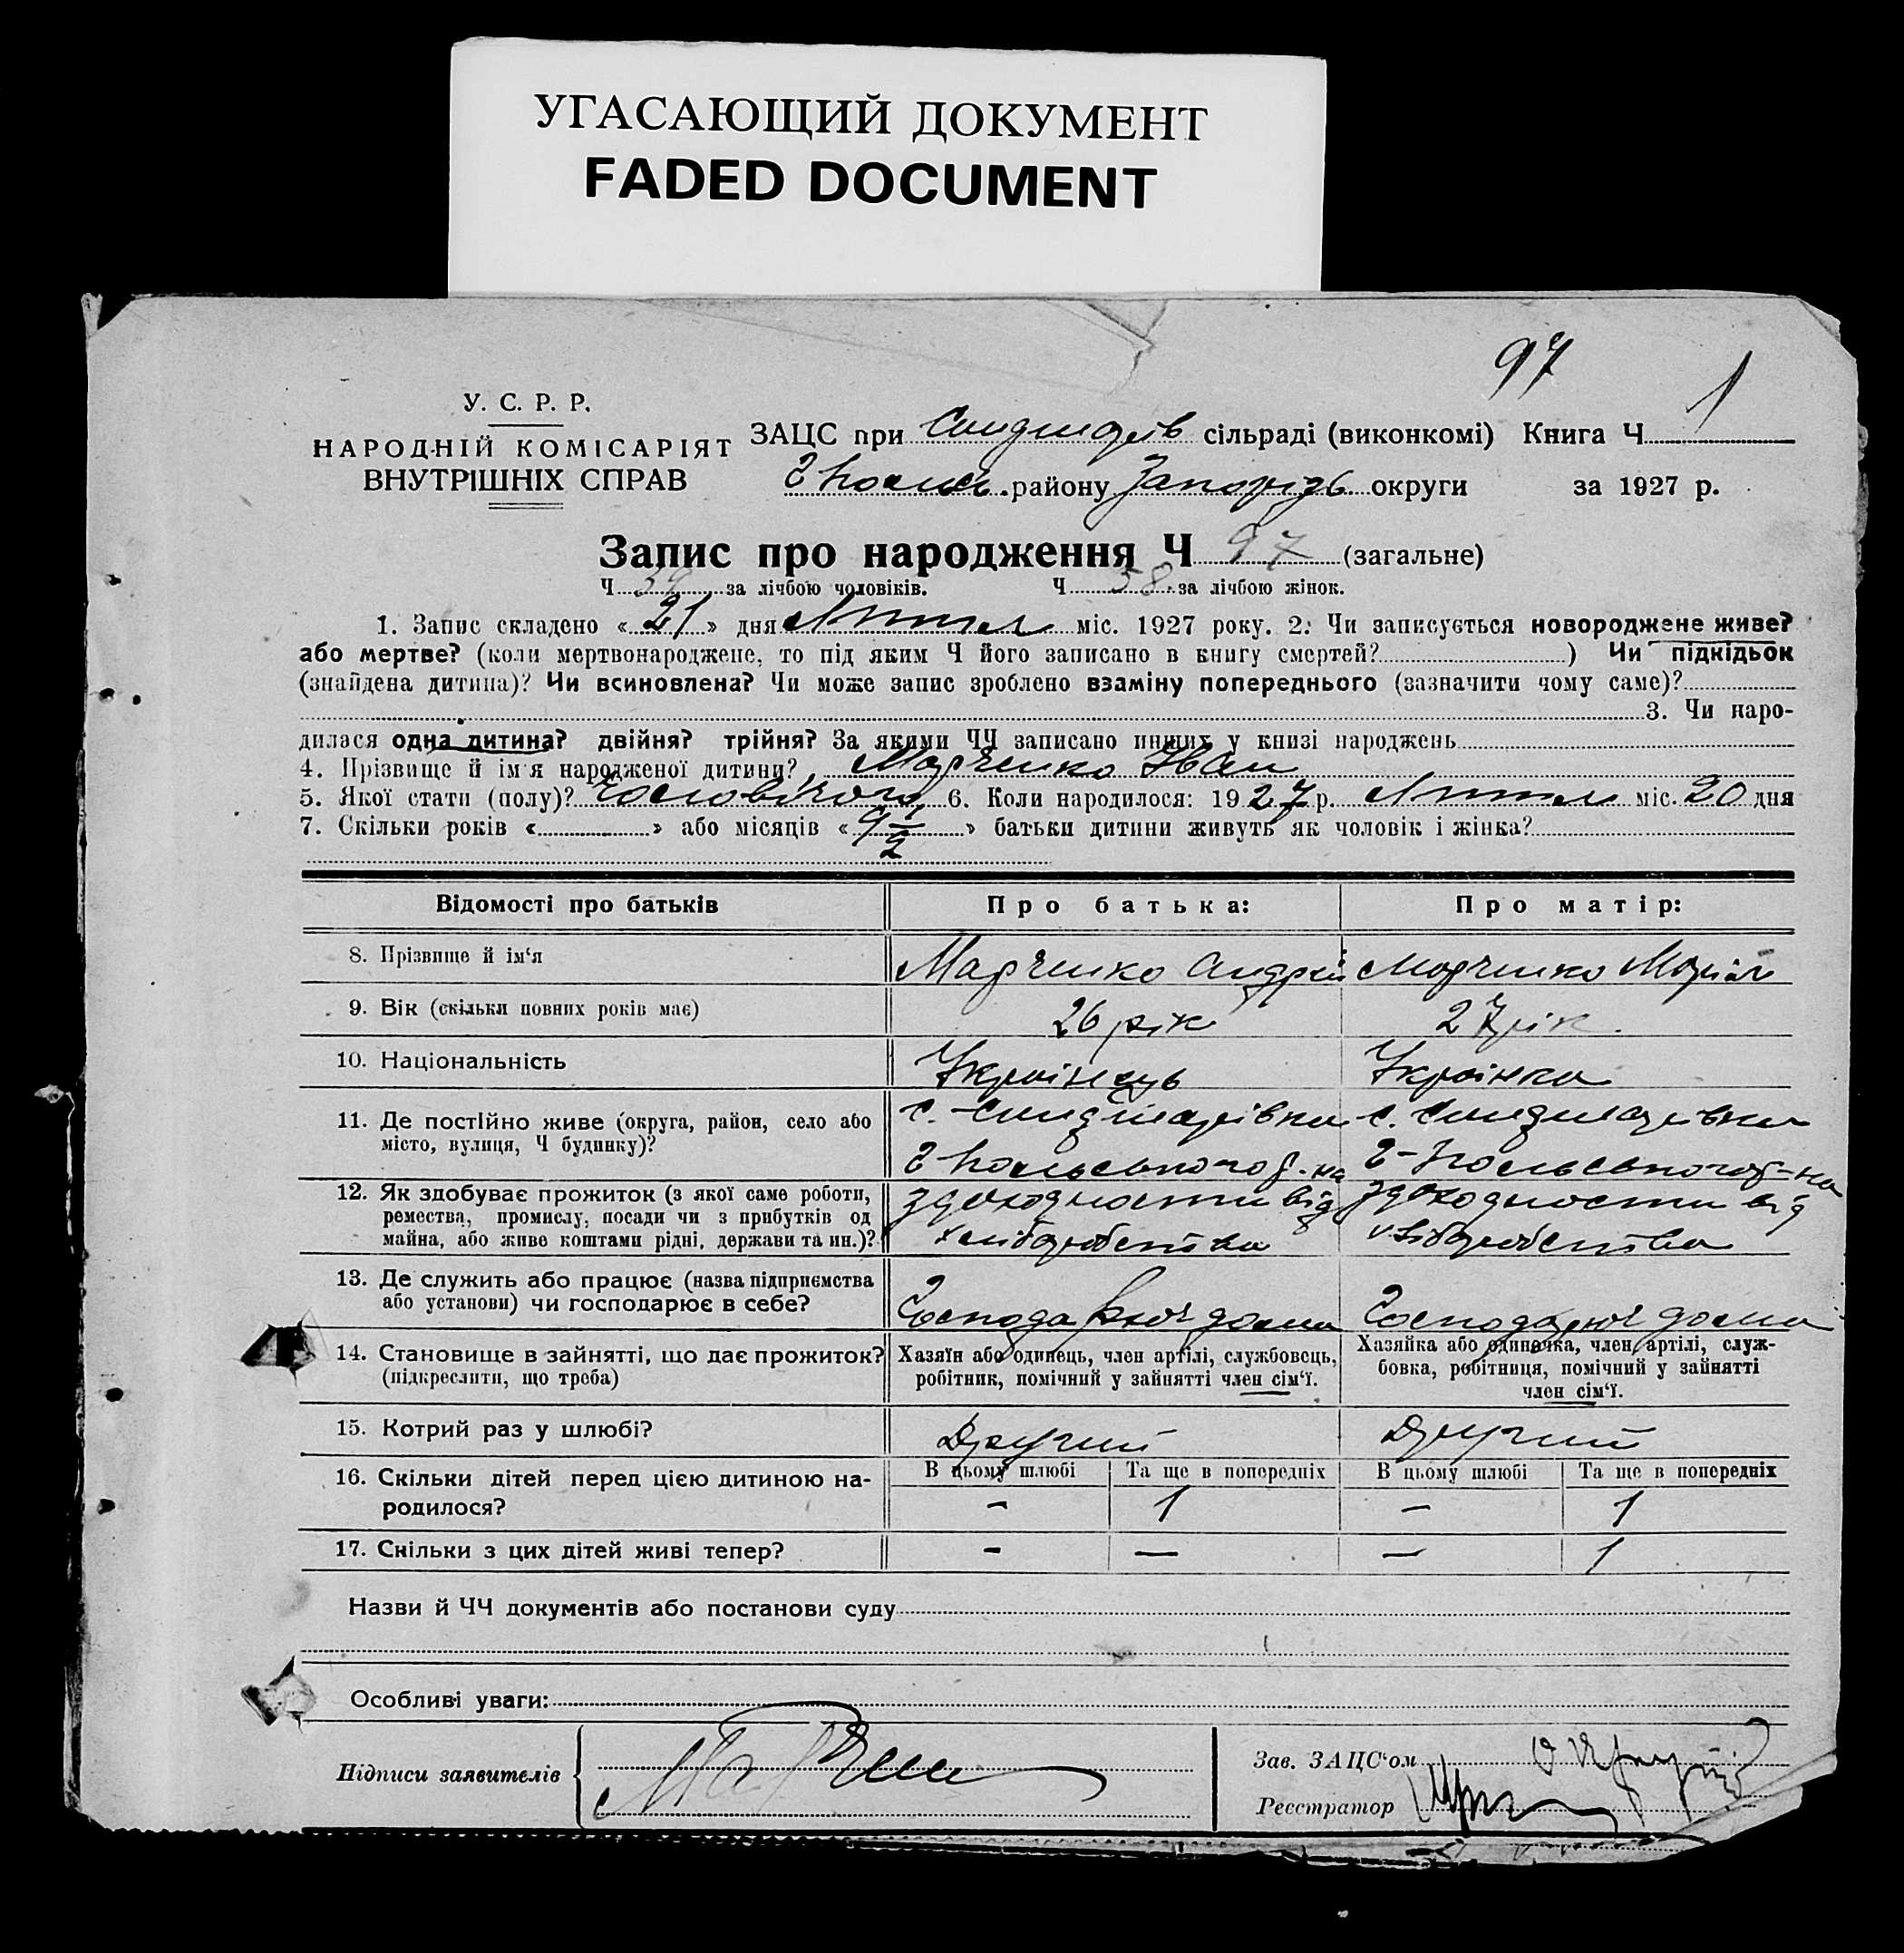 УГАСАЮЩИЙ ДОКУМЕНТ
FADED DOCUMENT
97
У. С. Р. Р.
НАРОДНІЙ КОМІСАРІЯТ
ВНУТРІШНІХ СПРАВ
ЗАЦС при сільраді (виконкомі) Книга Ч. 1
району Запорізь округи за 1927 р.
Запис про народження Ч 97 (загальне)
Ч 39 за лічбою чоловіків. Ч 58 за лічбою жінок.
1. Запис складено «21» дня міс. 1927 року. 2. Чи записується новороджене живе?
або мертве? (коли мертвонароджене, то під яким Ч його записано в книгу смертей? ) Чи підкідьок
(знайдена дитина)? Чи всиновлена? Чи може запис зроблено взаміну попереднього (зазначити чому саме)?
3. Чи наро-
дилася одна дитина? двійня? трійня? За якими ЧЧ записано инших у книзі народжень
4. Прізвище й ім'я народженої дитини? Марченко Іван
5. Якої стати (полу)? 6. Коли народилося: 1927 р. міс. 20 дня
7. Скільки років « » або місяців «9 1/2» батьки дитини живуть як чоловік і жінка?
Відомості про батьків Про батька: Про матір:
8. Прізвище й ім'я Марченко Андрій Марченко Марія
9. Вік (скільки повних років має) 26 рік 27 рік.
10. Національність Українець Українка
11. Де постійно живе (округа, район, село або
місто, вулиця, Ч будинку)?
12. Як здобуває прожиток (з якої саме роботи,
ремества, промислу, посади чи з прибутків од
майна, або живе коштами рідні, держави та ин.)?
13. Де служить або працює (назва підприємства
або установи) чи господарює в себе? Господарює дома Господарює дома
14. Становище в зайнятті, що дає прожиток?
(підкреслити, що треба)
Хазяїн або одинець, член артілі, службовець,
робітник, помічний у зайнятті член сім'ї.
Хазяйка або одиначка, член артілі, служ-
бовка, робітниця, помічний у зайнятті
член сім'ї.
15. Котрий раз у шлюбі? Другий Другий
16. Скільки дітей перед цією дитиною на-
родилося?
В цьому шлюбі Та ще в попередніх В цьому шлюбі Та ще в попередніх
- 1 - 1
17. Скільки з цих дітей живі тепер? - — — 1
Назви й ЧЧ документів або постанови суду
Особливі уваги:
Підписи заявителів
Зав. ЗАЦС'ом
Реєстратор